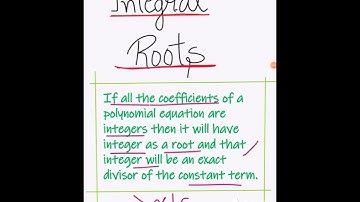 Integral
Roots
If all the coefficients of a
polynomial equation are
integers then it will have
integer as a root and that
integer will be an exact
divisor of the constant term.